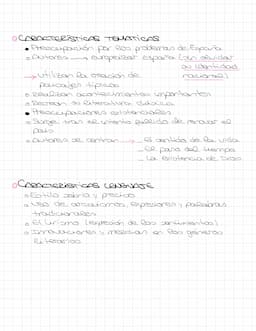 CARACTERÍSTICAS TEMÁTICAS
Preocupación por los problemas de España
Autores → europeizar españa (sin olvidar
su identidad
nacional)
→ utilizan la creación de
paisajes típicos
Realizan acontecimientos importantes
Recrean la literatura clásica
Preocupaciones existenciales
Surge tras el intento fallido de renovar el
país
Autores se centran → El sentido de la vida
El paso del tiempo
La existencia de Dios
CARACTERÍSTICAS LENGUAJE
Estilo sobrio y preciso
Uso de arcaísmos, expresiones y palabras
tradicionales
El lirismo (expresión de los sentimientos)
Innovaciones y mezclan en los géneros
literarios